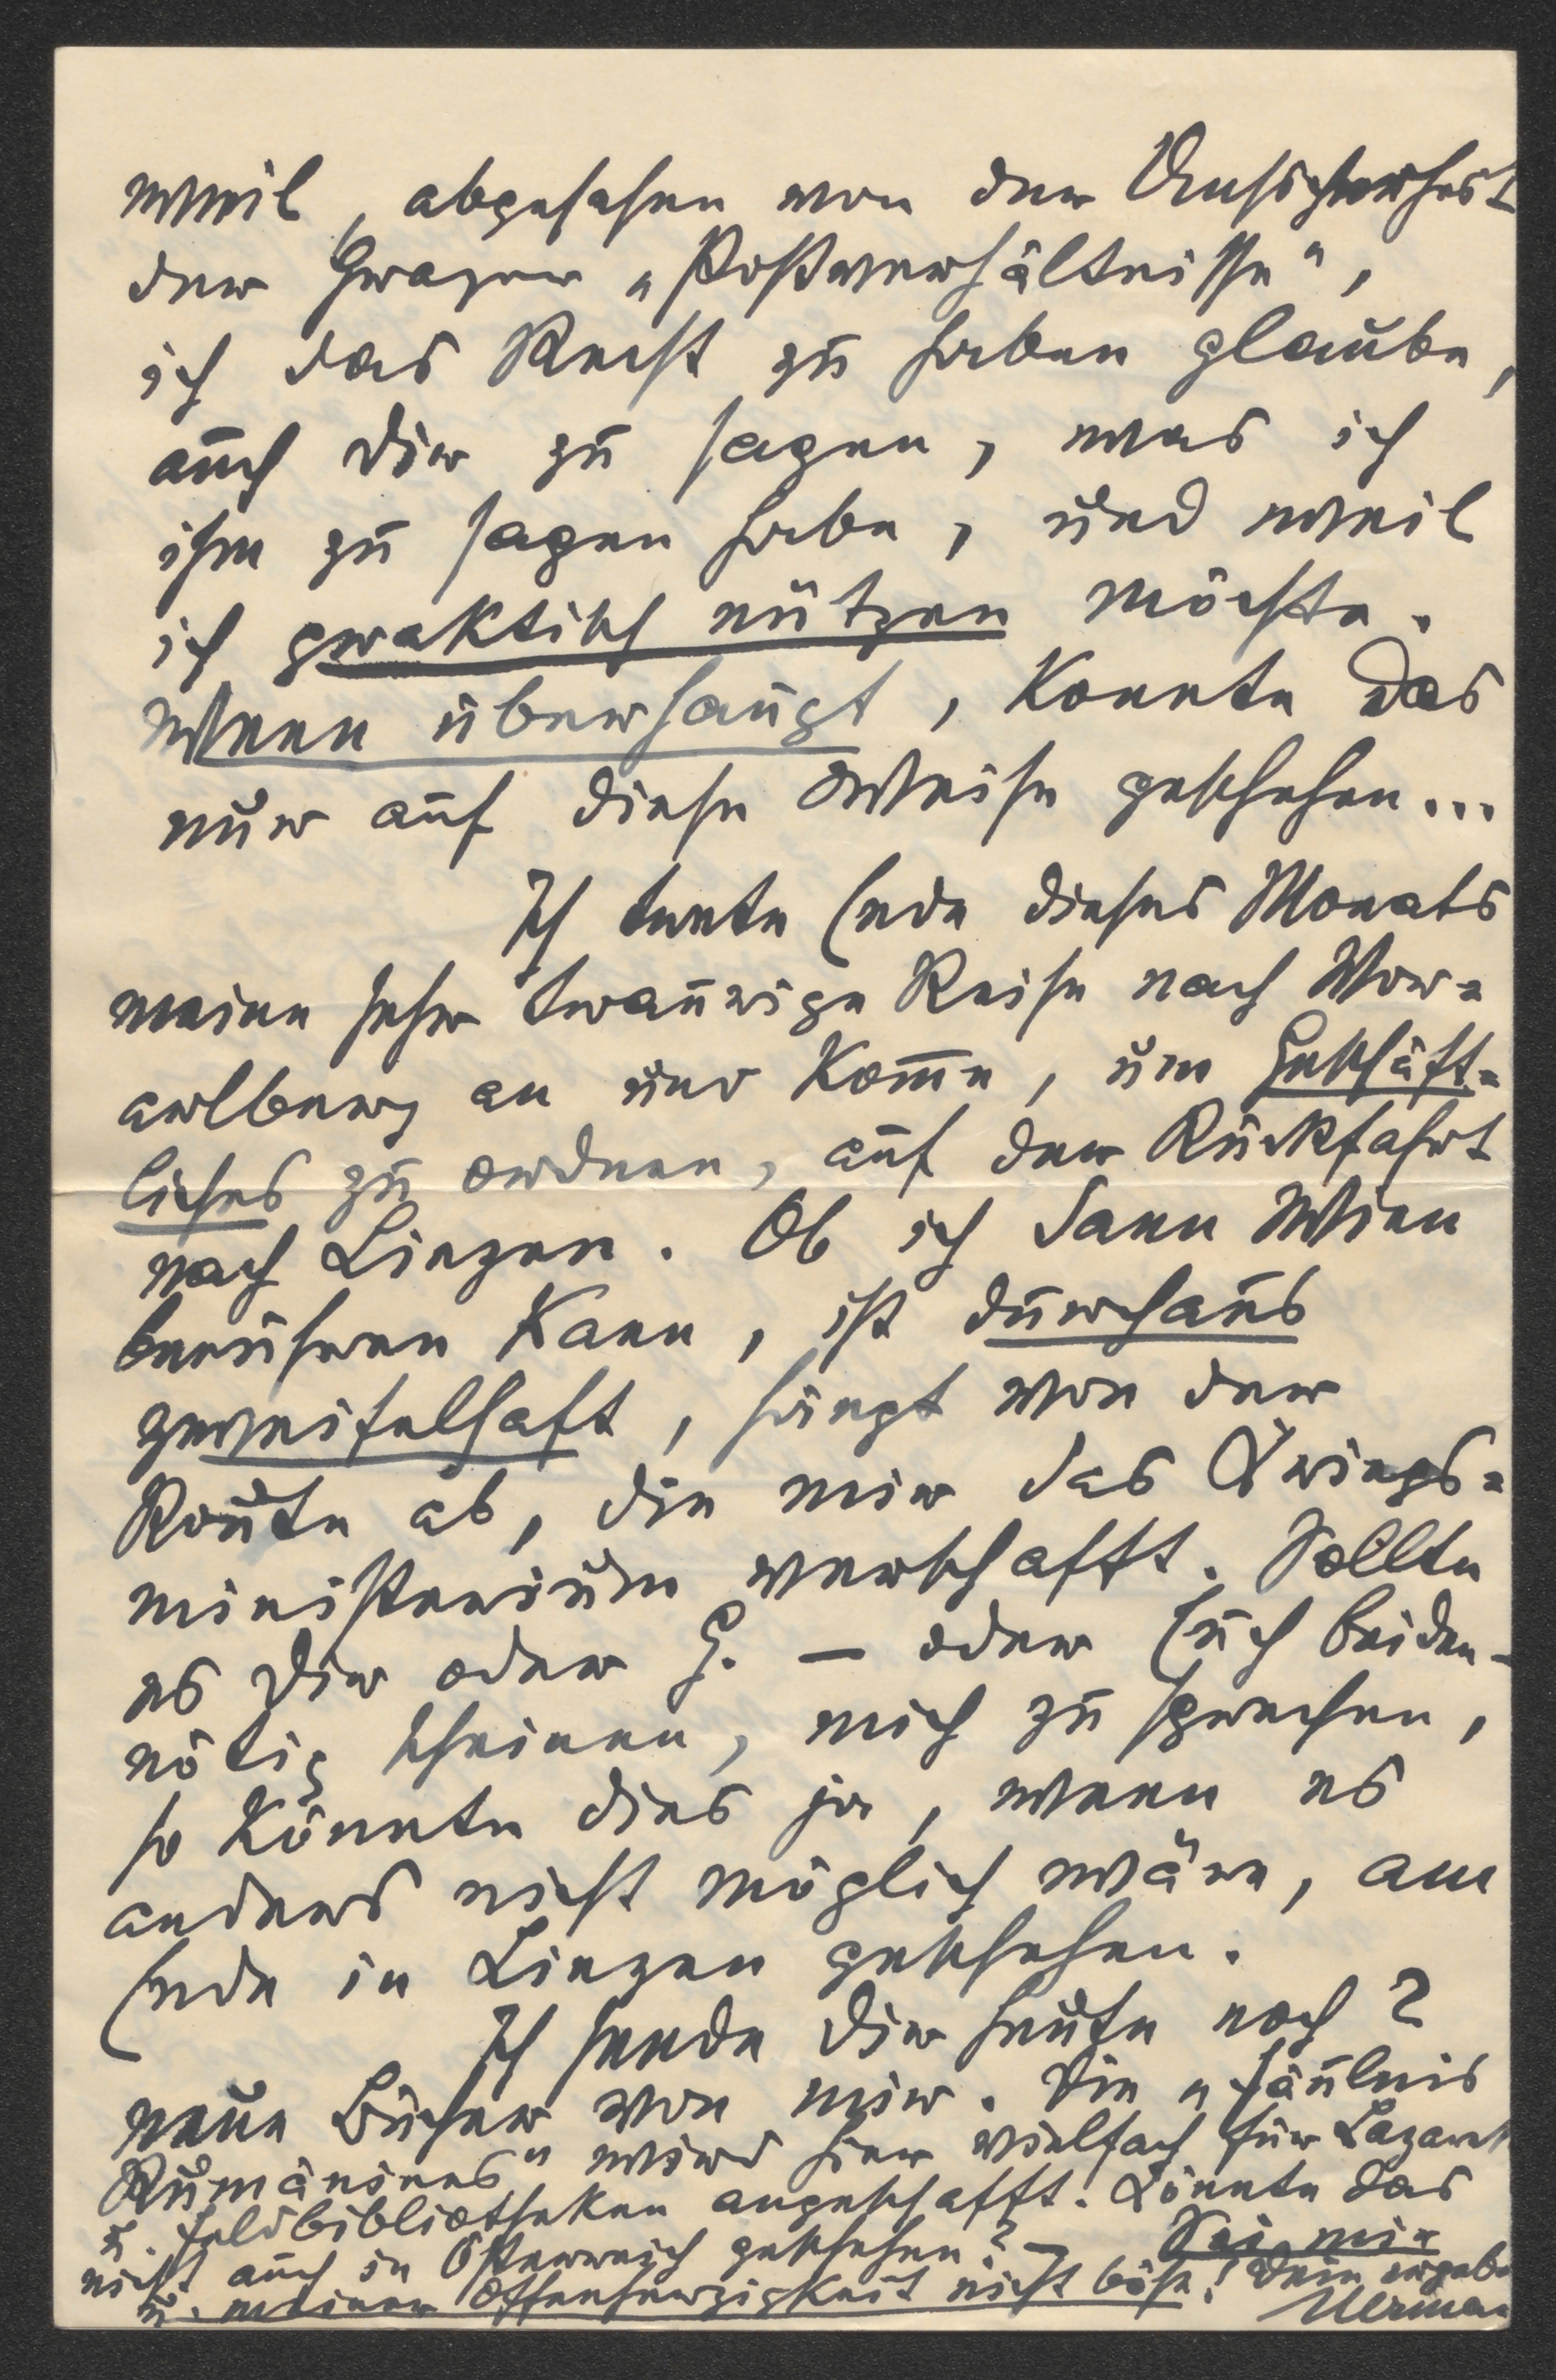 weil, abgesehen von der Unsicherheit
der Grazer „Postverhältnisse",
ich das Recht zu haben glaube,
auch Dir zu sagen, was ich
ihm zu sagen habe, und weil
ich praktisch nützen möchte.
Wenn überhaupt, konnte das
nur auf diese Weise geschehen...
Ich trete Ende dieses Monats
meine sehr traurige Reise nach Vor=
arlberg an und komme, um Geschäft=
liches zu ordnen, auf der Rückfahrt
nach Linz. Ob ich dann Wien
berühren kann, ist durchaus
zweifelhaft, hängt von der
Route ab, die mir das Kriegs=
ministerium verschafft. Sollte
es Dir oder G. — oder Euch beiden —
nötig scheinen, mich zu sprechen,
so könnte dies ja, wenn es
anders nicht möglich wäre, am
Ende in geschehen.
Ich sende Dir heute noch 2
neue Bücher von mir. Die „Fäulnis
Rumäniens" wird hier vielfach für Lazarett
u. Feldbibliotheken angeschafft. Könnte das
nicht auch in Österreich geschehen? — Sei mir
u. meiner Offenherzigkeit nicht böse! Dein